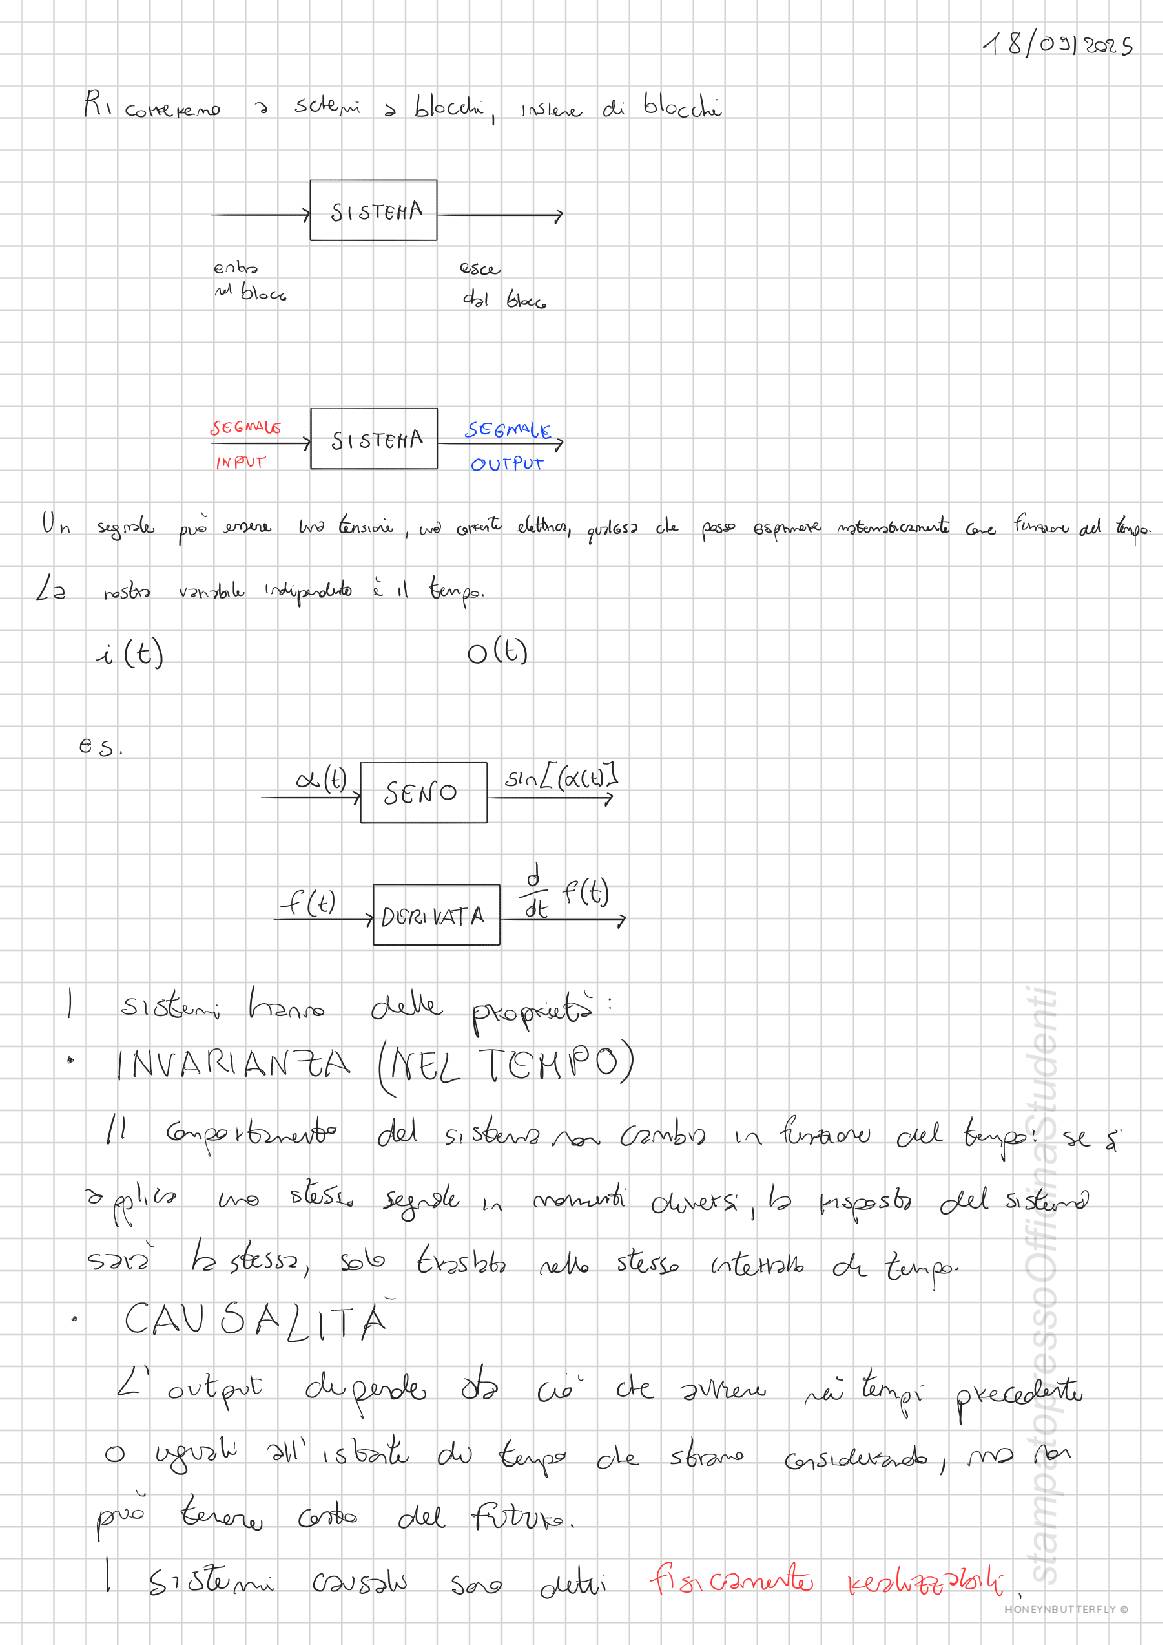 18/09/2025
Ricorreremo a schemi a blocchi, insieme di blocchi
SISTEMA
entra esce
nel blocco dal blocco
SEGNALE SISTEMA SEGNALE
INPUT OUTPUT
Un segnale può essere una tensione, una corrente elettrica, qualcosa che posso esprimere matematicamente come funzione del tempo.
La nostra variabile indipendente è il tempo.
i(t) o(t)
es.
α(t) SENO sin[(α(t)]
f(t) DERIVATA d/dt f(t)
I sistemi hanno delle proprietà:
• INVARIANZA (NEL TEMPO)
Il comportamento del sistema non cambia in funzione del tempo: se si
applica uno stesso segnale in momenti diversi, la risposta del sistema
sarà la stessa, solo traslata nello stesso intervallo di tempo.
• CAUSALITÀ
L'output dipende da ciò che avviene nei tempi precedenti
o uguali all'istante di tempo che stiamo considerando, ma non
può tenere conto del futuro.
I sistemi causali sono detti fisicamente realizzabili.
stampatopressoOfficinaStudenti
HONEYNBUTTERFLY ©